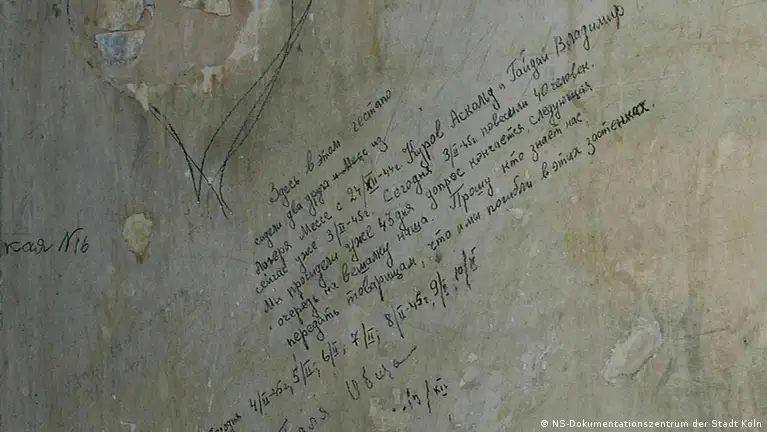 Здесь в этом гестапо
сидели два друга и Месс из
лагеря Мессе с 24/XII-44г Куров Аскольд и Гайдай Владимир
сейчас уже 3/II-45г. Сегодня 3/II-45г повесили 40 человек.
Ми просидели уже 43 дня допрос кончается следующая
очередь на вешалку наша. Прошу кто знает нас
передать товарищам, что и ми погибли в этих застенках.
4/II-45г, 5/II; 6/II; 7/II; 8/II-45г 9/II, 10/II
кая N16
© NS-Dokumentationszentrum der Stadt Köln